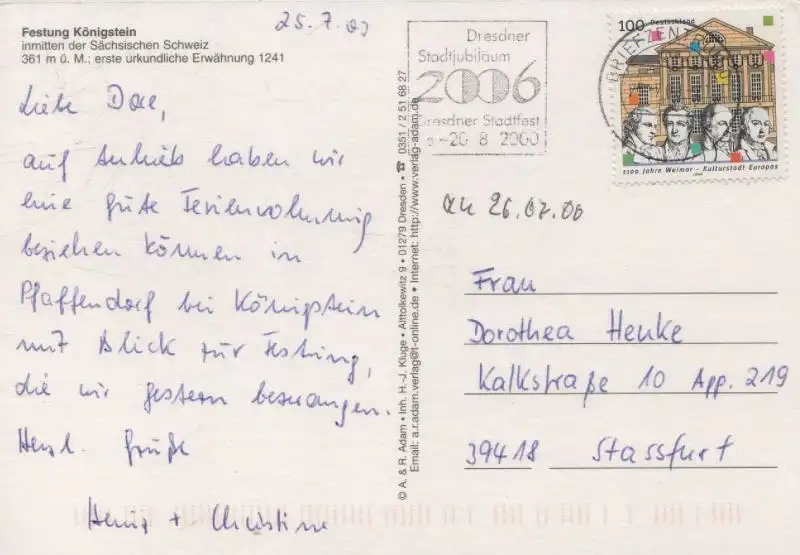 Festung Königstein
inmitten der Sächsischen Schweiz
361 m ü. M.; erste urkundliche Erwähnung 1241
25.7.00
Liebe Dore,
auf Anhieb haben wir
eine gute Ferienwohnung
beziehen können in
Pfaffendorf bei Königstein
mit Blick zur Festung,
die wir gestern bezwangen.
Herzl. Grüße
Heinz + Christine
© A. & R. Adam • Inh. H.-J. Kluge • Altolkewitz 9 • 01279 Dresden • ☎ 0351 / 2 51 68 27
Email: a.r.adam.verlag@t-online.de • Internet: http://www.verlag-adam.de
Dresdner
Stadtjubiläum
2006
Dresdner Stadtfest
-20 8 2000
BRIEFZEN
100 Deutschland
1100 Jahre Weimar - Kulturstadt Europas
1999
an 26.07.00
Frau
Dorothea Henke
Kalkstraße 10 App. 219
39418 Stassfurt